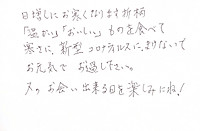 日増しにお寒くなります折柄
「温かい」「おいしい」ものを食べて
寒さに、新型コロナウィルスに、まけないで
お元気で お過し下さい。
又のお会い出来る日を楽しみにね!